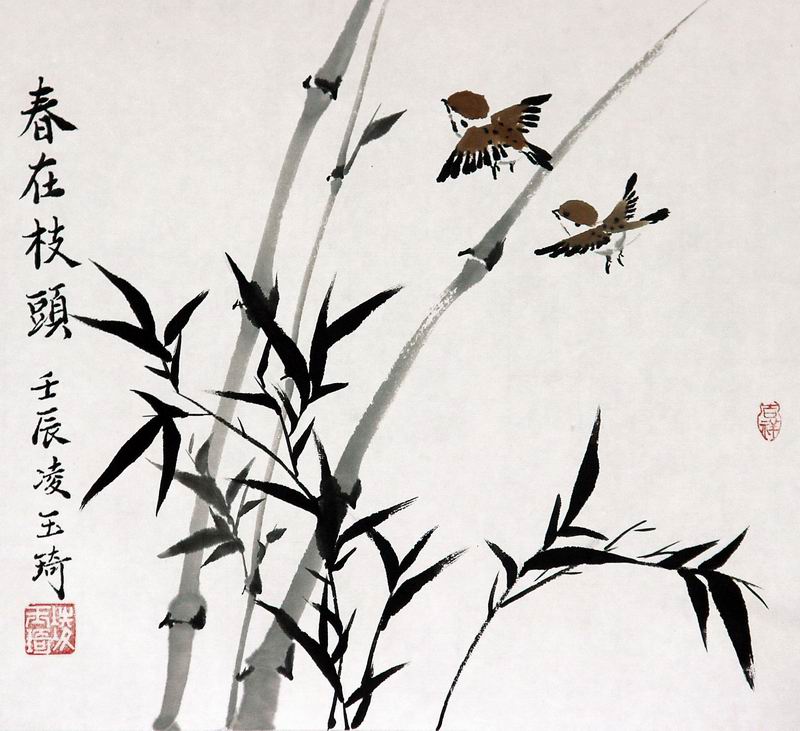 春在枝頭
壬辰凌玉琦
吉祥